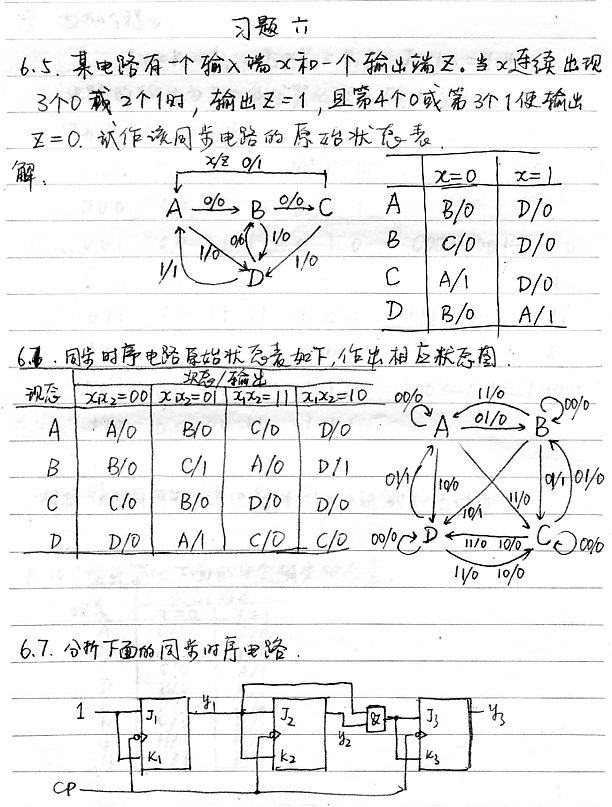 习题六
6.5. 某电路有一个输入端x和一个输出端Z。当x连续出现
3个0或2个1时，输出Z=1，且第4个0或第3个1使输出
Z=0. 试作该同步电路的原始状态表.
解:
x/z 0/1
A 0/0 B 0/0 C
1/0 0/0 1/0 1/0
1/1 D
x=0 x=1
A B/0 D/0
B C/0 D/0
C A/1 D/0
D B/0 A/1
6.6. 同步时序电路原始状态表如下,作出相应状态图.
现态 次态/输出
x₁x₂=00 x₁x₂=01 x₁x₂=11 x₁x₂=10
A A/0 B/0 C/0 D/0
B B/0 C/1 A/0 D/1
C C/0 B/0 D/0 D/0
D D/0 A/1 C/0 C/0
00/0 11/0 00/0
A 01/0 B
01/1 10/0 10/1 11/0 01/1 01/0
00/0 D 11/0 10/0 C 00/0
11/0 10/0
6.7. 分析下面的同步时序电路.
1 J₁ y₁ J₂ & J₃ y₃
K₁ K₂ y₂ K₃
CP